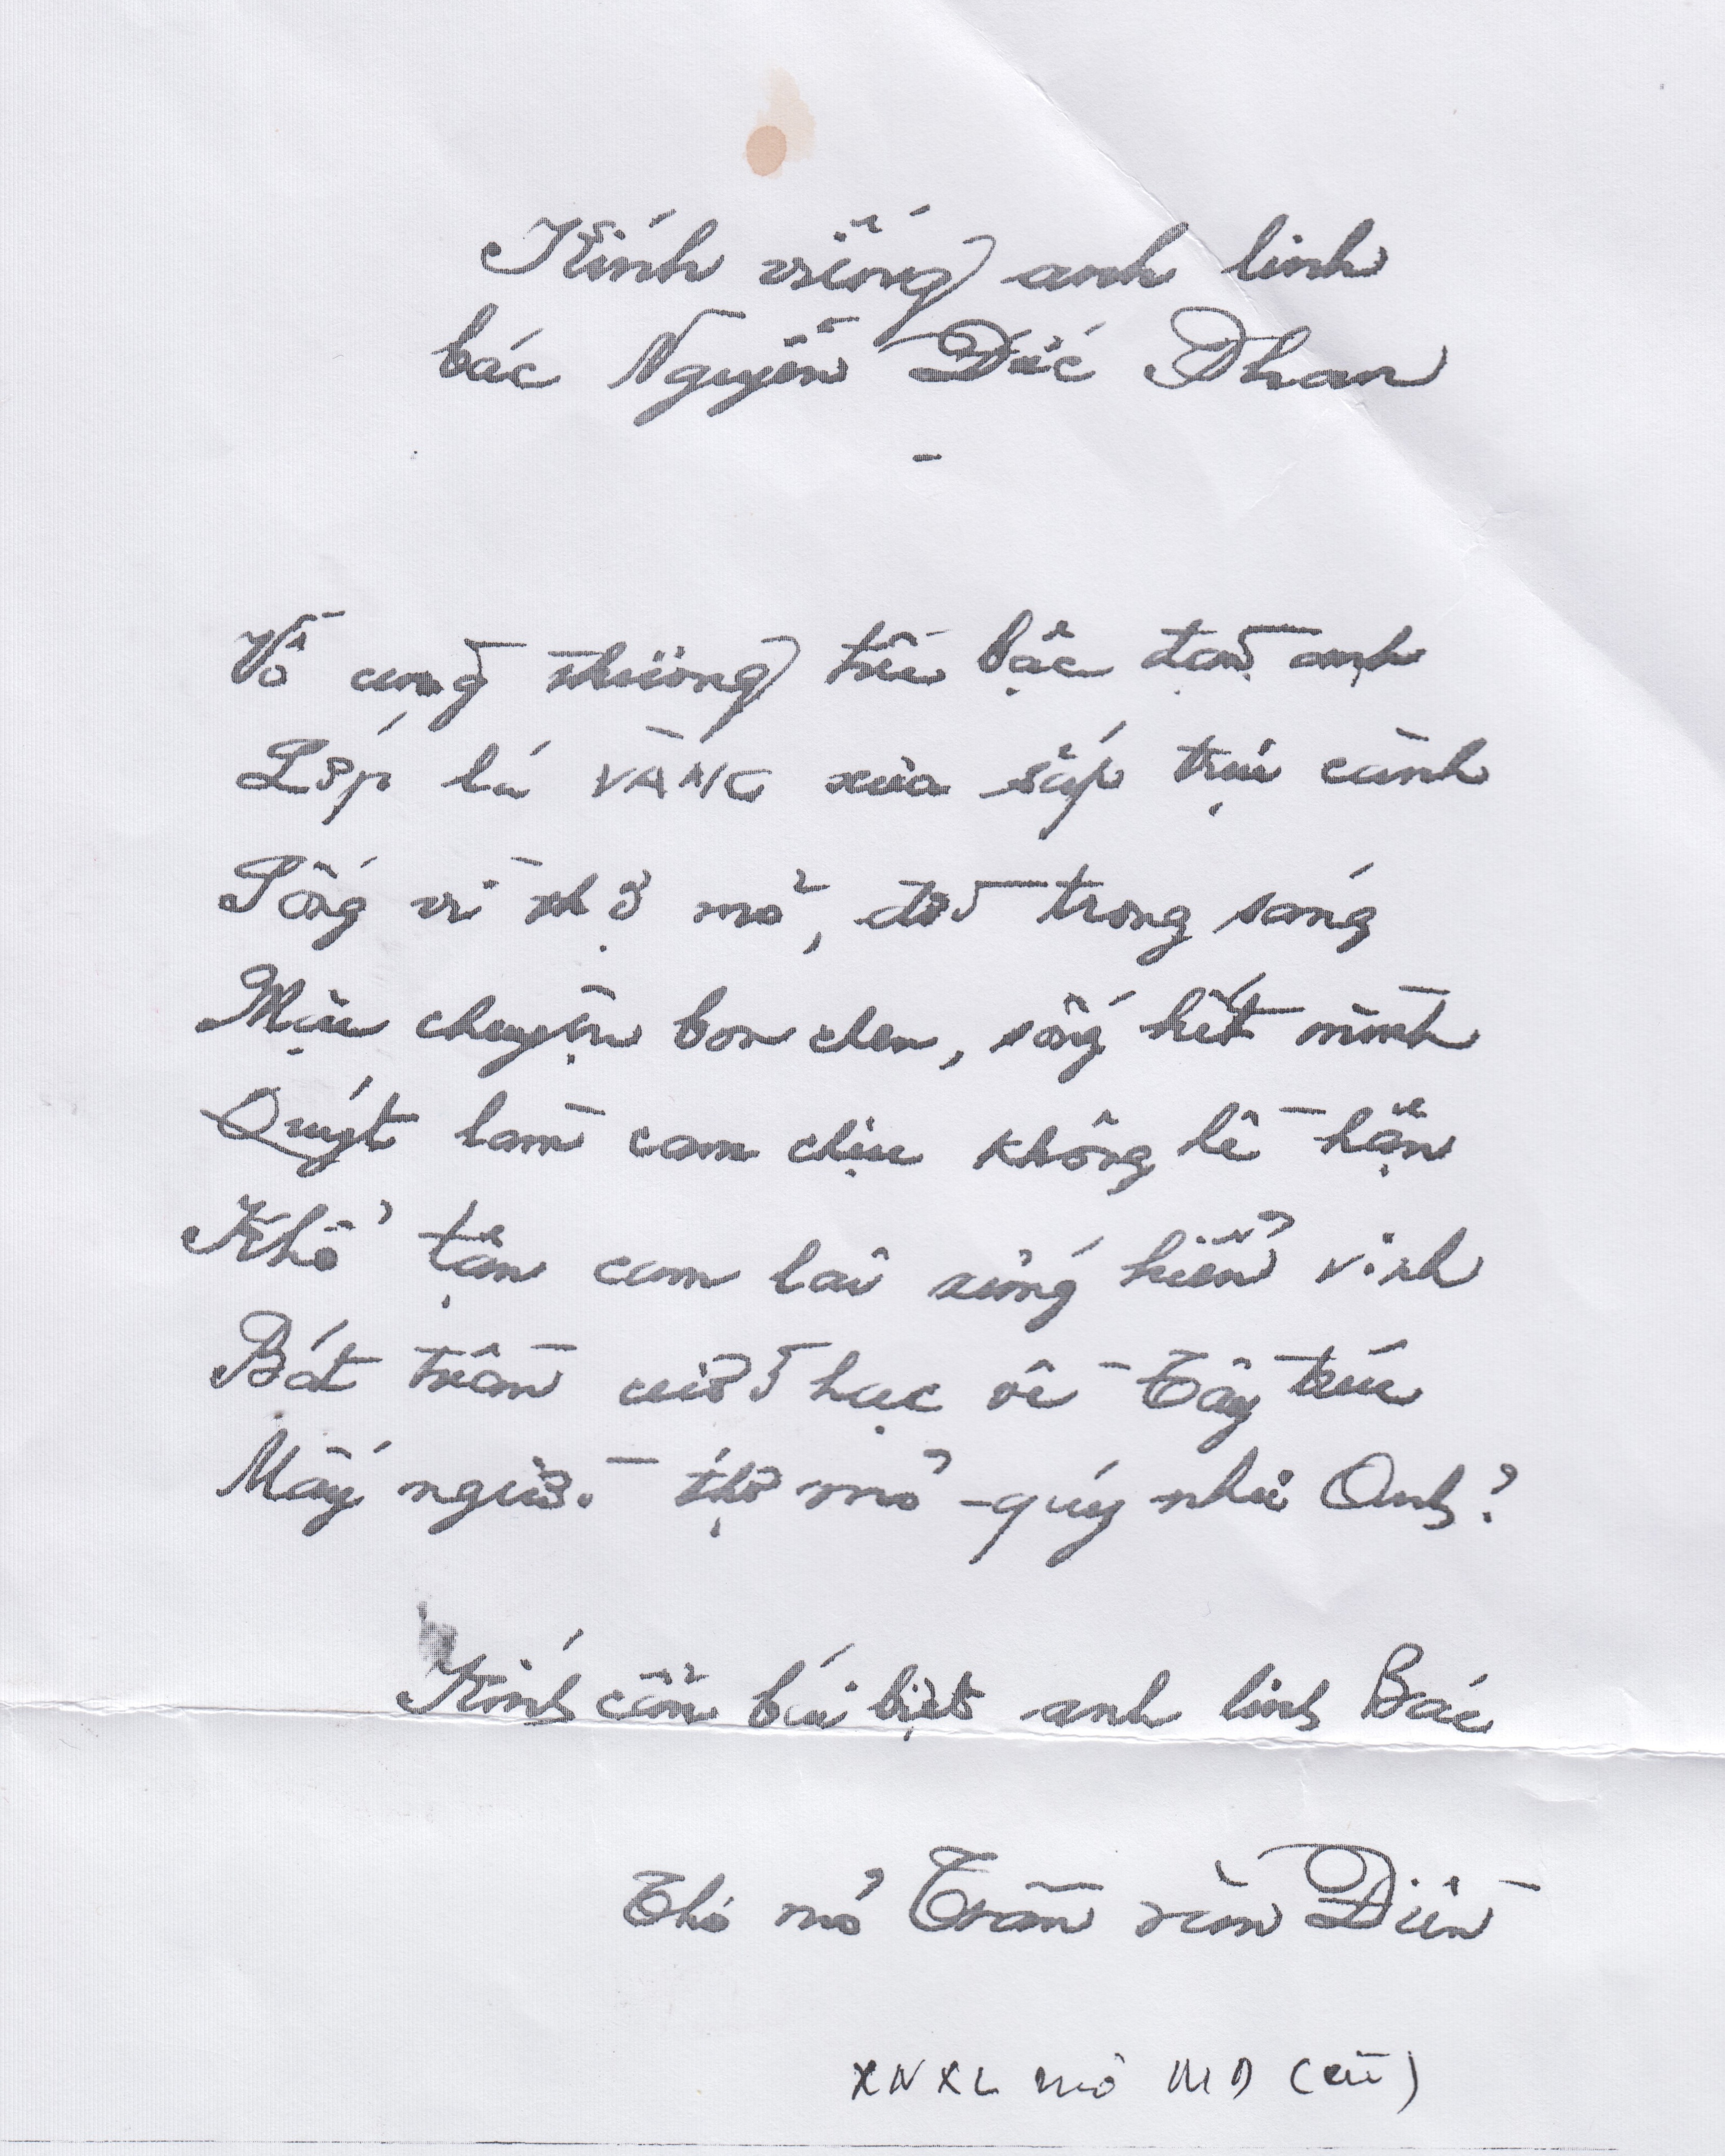 Kính viếng anh linh
bác Nguyễn Đức Phan
-
Vô cùng thương tiếc bậc đàn anh
Lớp lá VÀNG xưa sắp trụi cành
Sống vì thợ mỏ, đời trong sáng
Mặc chuyện bon chen, sống hết mình
Quýt làm cam chịu không hề hận
Khổ tận cam lai xứng hiển vinh
Bát tuần cưỡi hạc về Tây trúc
Mấy người thợ mỏ quý như Anh?
Kính cẩn bái biệt anh linh Bác
Thợ mỏ Trần văn Điền
XNXL mỏ (cũ)